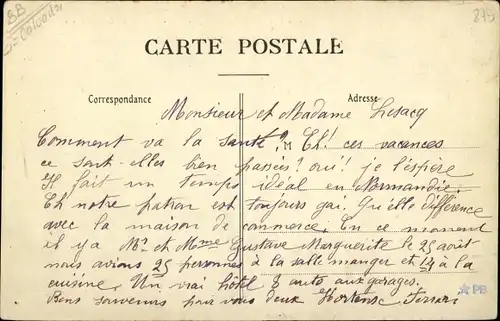 BB
Calvados
875
CARTE POSTALE
Correspondance
Adresse
Monsieur et Madame Lesacq
Comment va la santé? Eh! ces vacances
ce sont-elles bien passées? oui! je l'éspère
Il fait un temps idéal en Normandie.
Eh notre patron est toujours gai. Qu'elle différence
avec la maison de commerce. En ce moment
il ya Mr et Mme Gustave Marguerite le 25 août
nous avions 25 personnes à la salle manger et 14 à la
cuisine. Un vrai hôtel 8 auto aux garages.
Bons souvenirs pour vous deux Hortense Ferrari
PB